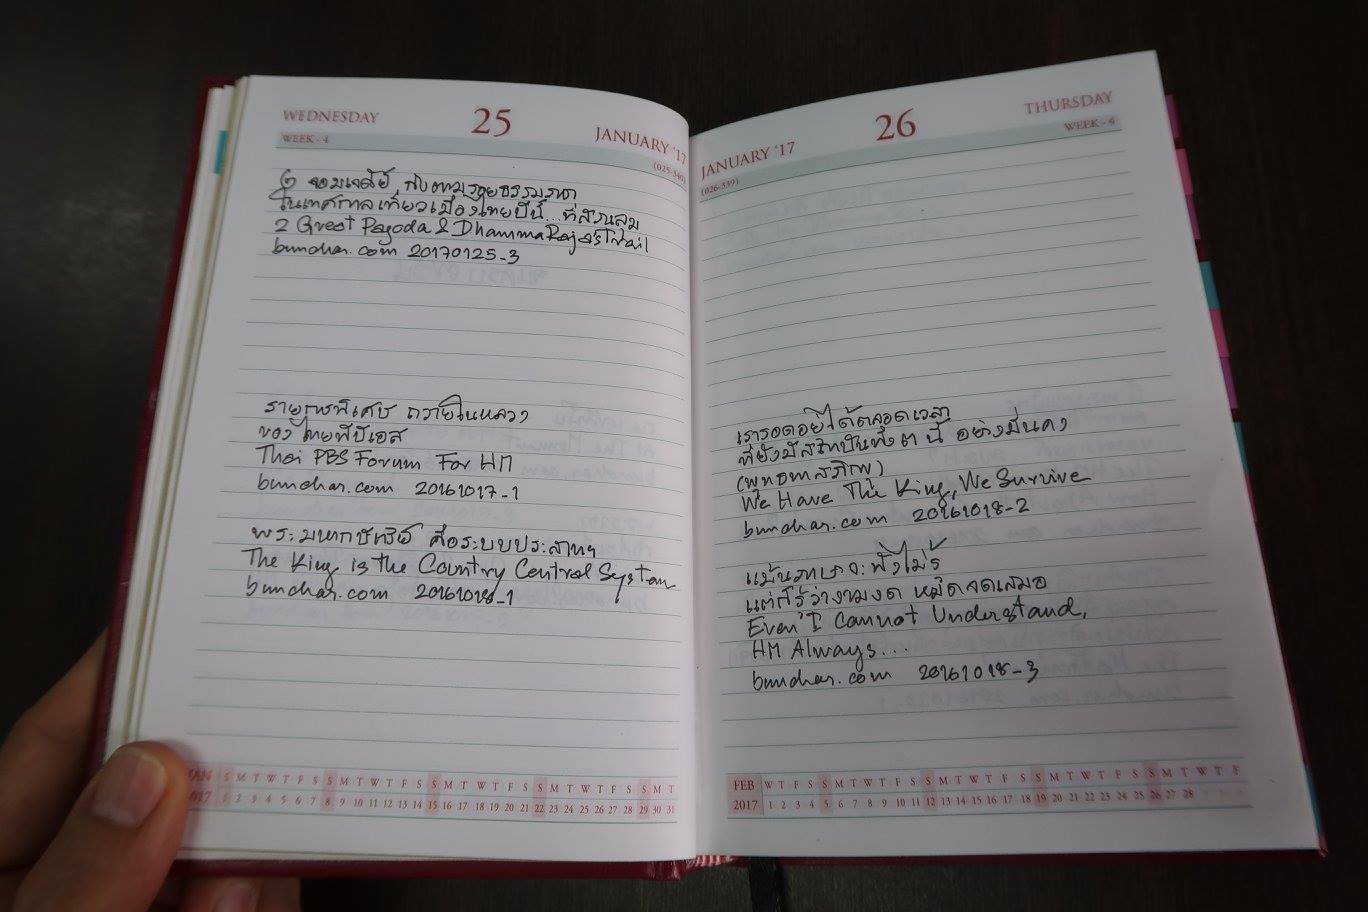 WEDNESDAY
25
JANUARY '17
WEEK - 4
(025-340)
๒ จอมเจดีย์, กับตามรอยธรรมราชา
ในเทศกาลเที่ยวเมืองไทยปีนี้...ที่สวนลุม
2 Great Pagoda & DhammaRaja's Trail
bunchar.com 20170125_3
รายการพิเศษ ถวายในหลวง
ของไทยพีบีเอส
Thai PBS Forum For HM
bunchar.com 20161017_1
พระมหากษัตริย์ คือระบบประสาทฯ
The King is the Country Central System
bunchar.com 20161018_1
JAN S M T W T F S S M T W T F S S M T W T F S S M T W T F S S M T
2017 1 2 3 4 5 6 7 8 9 10 11 12 13 14 15 16 17 18 19 20 21 22 23 24 25 26 27 28 29 30 31
THURSDAY
26
JANUARY '17
WEEK - 4
(026-339)
เรารอดอยู่ได้ตลอดเวลา
ที่ยังมีสถาบันทั้ง ๓ นี้ อย่างมั่นคง
(พุทธทาสภิกขุ)
We Have The King, We Survive
bunchar.com 20161018_2
แม้นภาษาจะฟังไม่รู้
แต่ก็รู้ว่างามงด หมดจดเสมอ
Even I Cannot Understand,
HM Always...
bunchar.com 20161018_3
FEB W T F S S M T W T F S S M T W T F S S M T W T F S S M T W T F
2017 1 2 3 4 5 6 7 8 9 10 11 12 13 14 15 16 17 18 19 20 21 22 23 24 25 26 27 28